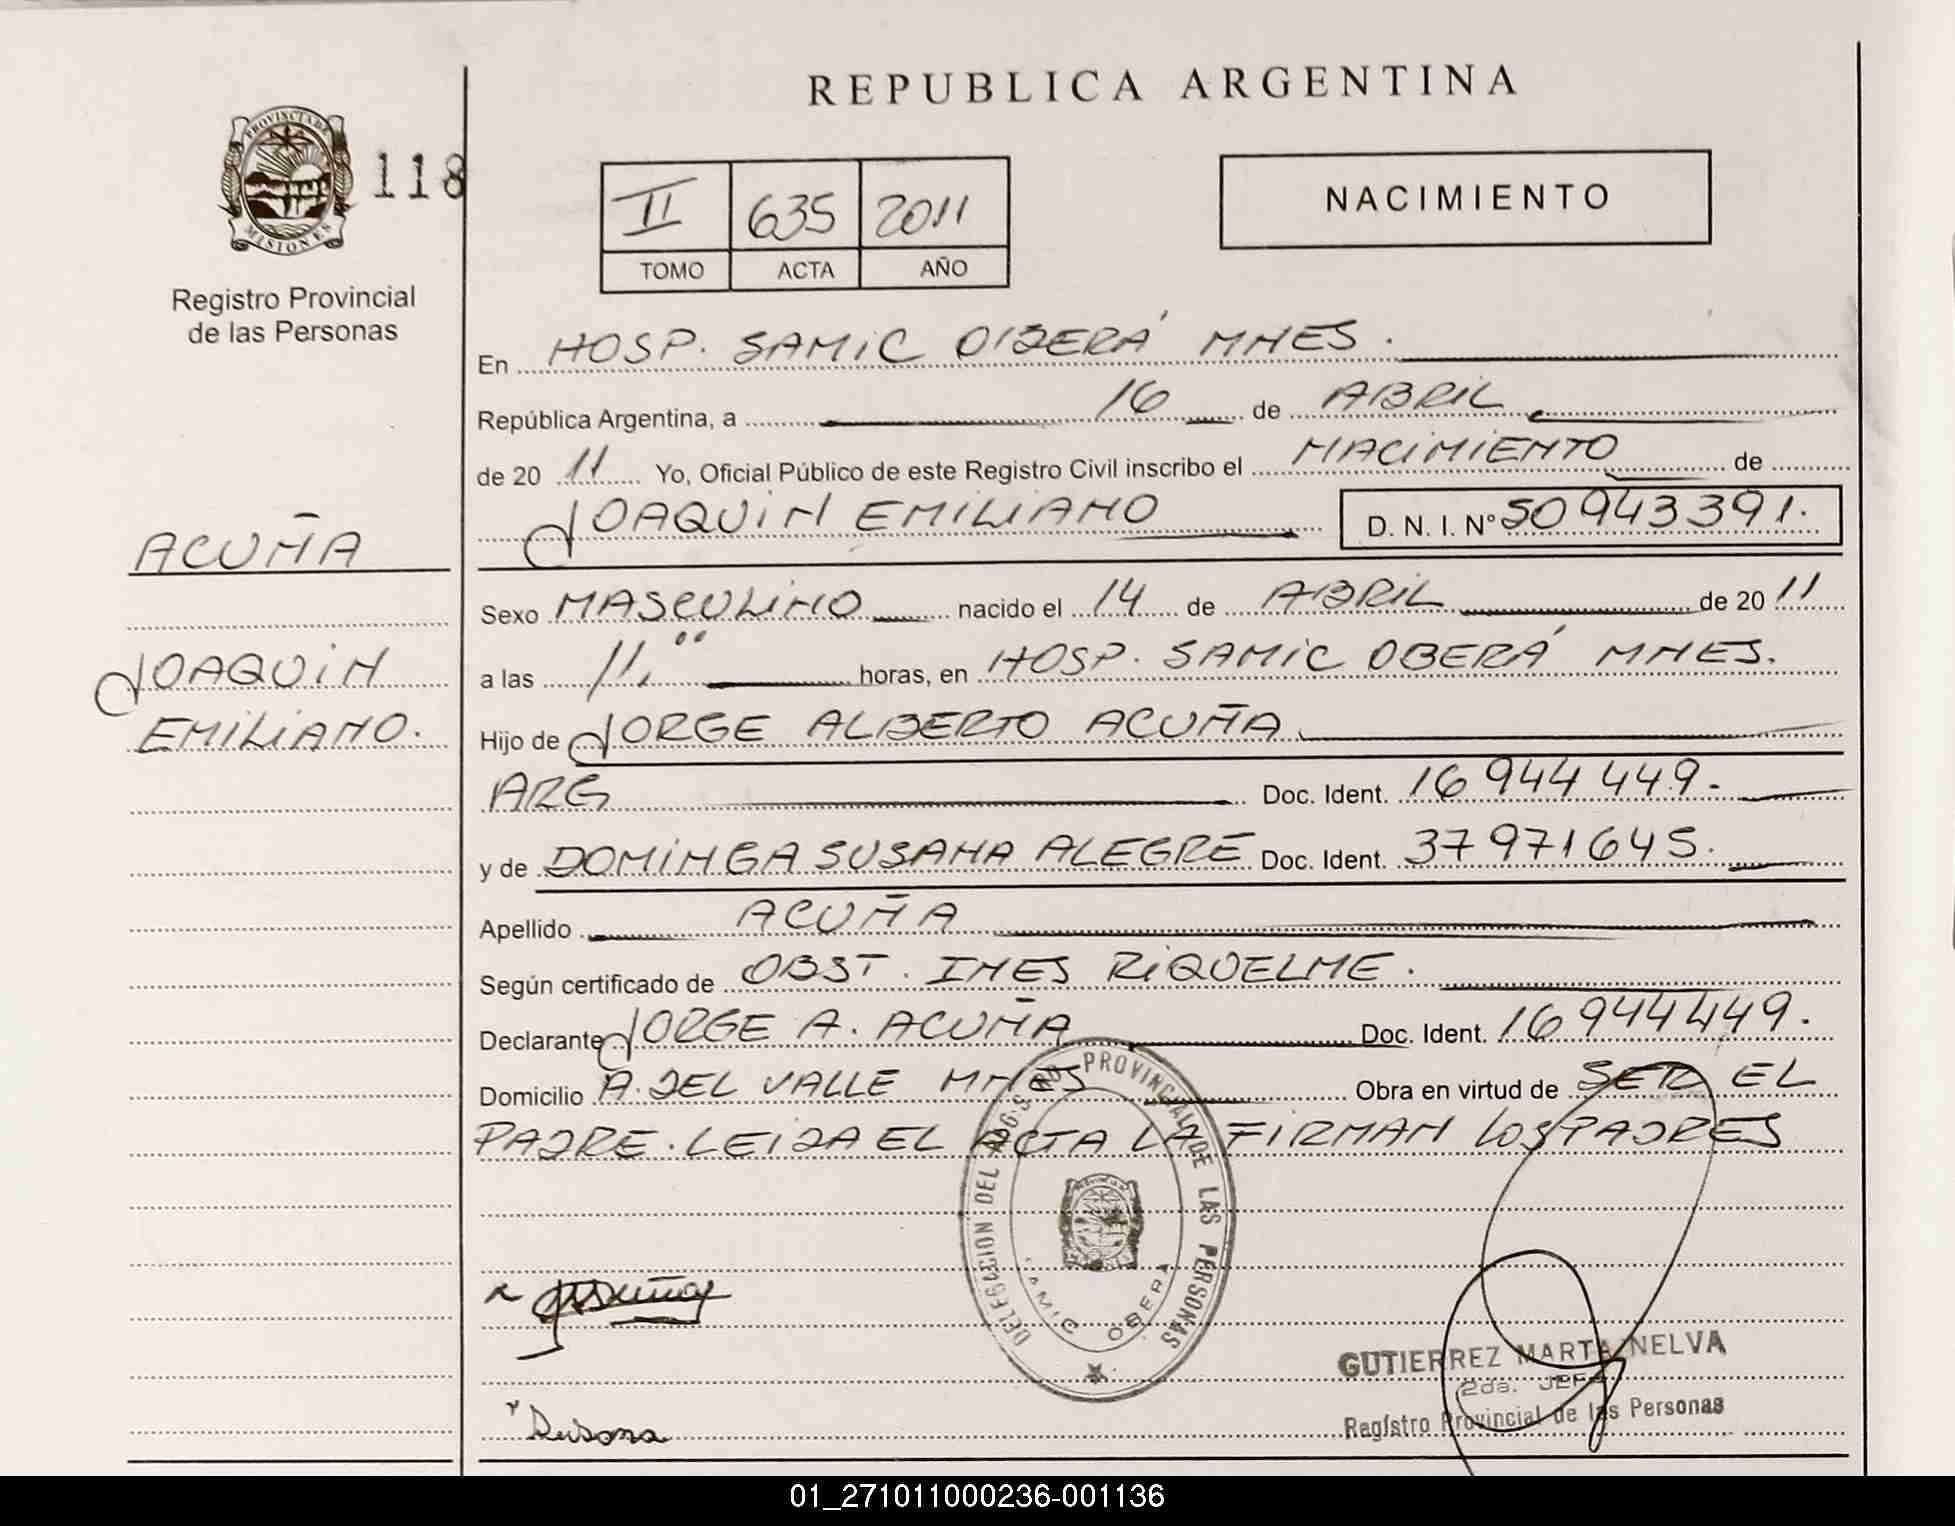 REPUBLICA ARGENTINA
PROVINCIA DE
MISIONES
118
Registro Provincial
de las Personas
II 635 2011
TOMO ACTA AÑO
NACIMIENTO
En HOSP. SAMIC OBERÁ MNES.
República Argentina, a 16 de ABRIL
de 20 11 Yo, Oficial Público de este Registro Civil inscribo el NACIMIENTO de
JOAQUIN EMILIANO D. N. I. N° 50943391.
ACUÑA
JOAQUIN
EMILIANO.
Sexo MASCULINO nacido el 14 de ABRIL de 20 11
a las 11,00 horas, en HOSP. SAMIC OBERÁ MNES.
Hijo de JORGE ALBERTO ACUÑA
ARG Doc. Ident. 16944449.
y de DOMINGA SUSANA ALEGRE Doc. Ident. 37971645.
Apellido ACUÑA
Según certificado de OBST. INES RIQUELME.
Declarante JORGE A. ACUÑA Doc. Ident. 16944449.
Domicilio A. DEL VALLE MNES Obra en virtud de SER EL
PADRE. LEIDA EL ACTA LA FIRMAN LOS PADRES
DELEGACION DEL REG. PROVINCIAL DE LAS PERSONAS
SAMIC OBERA
Acuña
Susana
GUTIERREZ MARTA NELVA
2da. JEFA
Registro Provincial de las Personas
01_271011000236-001136